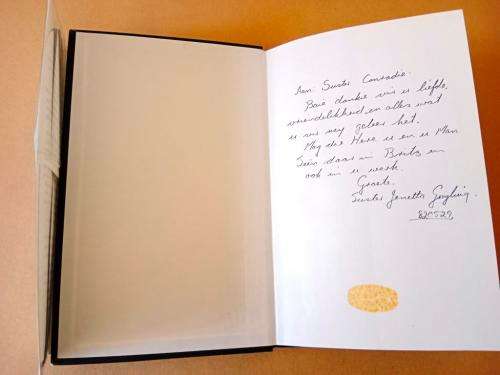 Aan: Suster Conradie.
Baie dankie vir u liefde,
vriendelikheid en alles wat
u vir my geleer het.
Mag die Here u en u Man
Seën daar in Brits en
ook in u werk.
Groete.
Suster Janetta
820529